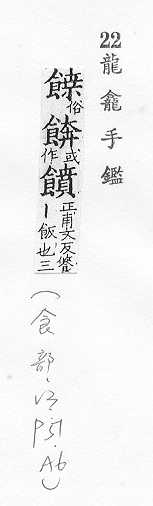 22 龍龕手鑑
俗餴或作饙正甫文反丨飯也三
(食部 P51.A6)